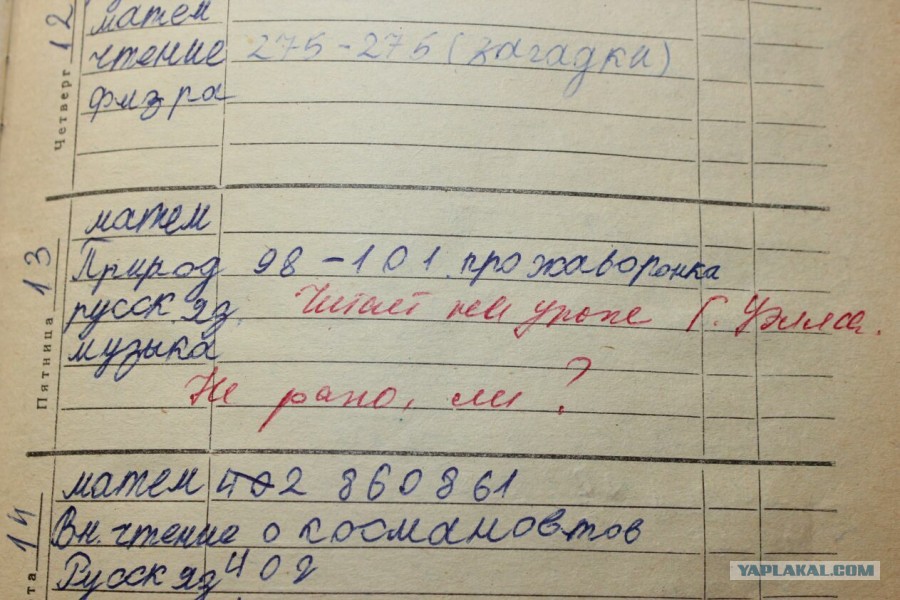 12
матем
Четверг
чтение 275-275 (загадки)
физра
13
Пятница
матем
Природ 98-101 прожаворонка
русск.яз. Читает на уроке Г. Уэллса.
музыка
Не рано, ли?
14
матем 402 860 861
Вн. чтение о космановтов
Русск яз 402
та
YAPLAKAL.COM